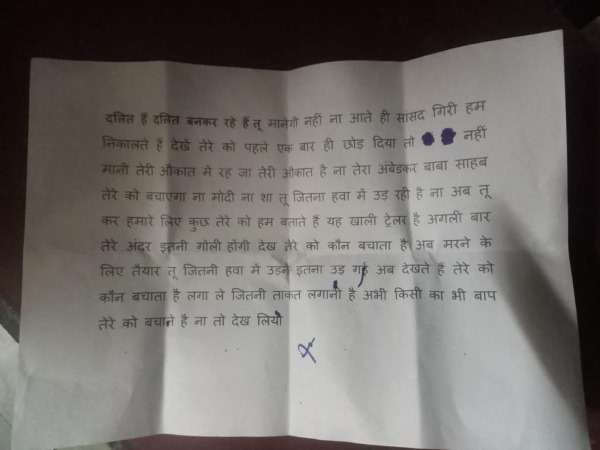 दलित हैं दलित बनकर रहे हैं तू मानेगी नहीं ना आते ही सांसद गिरी हम
निकालते है देखें तेरे को पहले एक बार ही छोड़ दिया तो नहीं
मानी तेरी औकात में रह जा तेरी औकात है ना तेरा अंबेडकर बाबा साहब
तेरे को बचाएगा ना मोदी ना शा तू जितना हवा में उड़ रही है ना अब तू
कर हमारे लिए कुछ तेरे को हम बताते हैं यह खाली ट्रेलर है अगली बार
तेरे अंदर इतनी गोली होंगी देख तेरे को कौन बचाता है अब मरने के
लिए तैयार तू जितनी हवा में उड़ने इतना उड़ गई अब देखते हैं तेरे को
कौन बचाता है लगा ले जितनी ताकत लगानी है अभी किसी का भी बाप
तेरे को बचाने है ना तो देख लियो